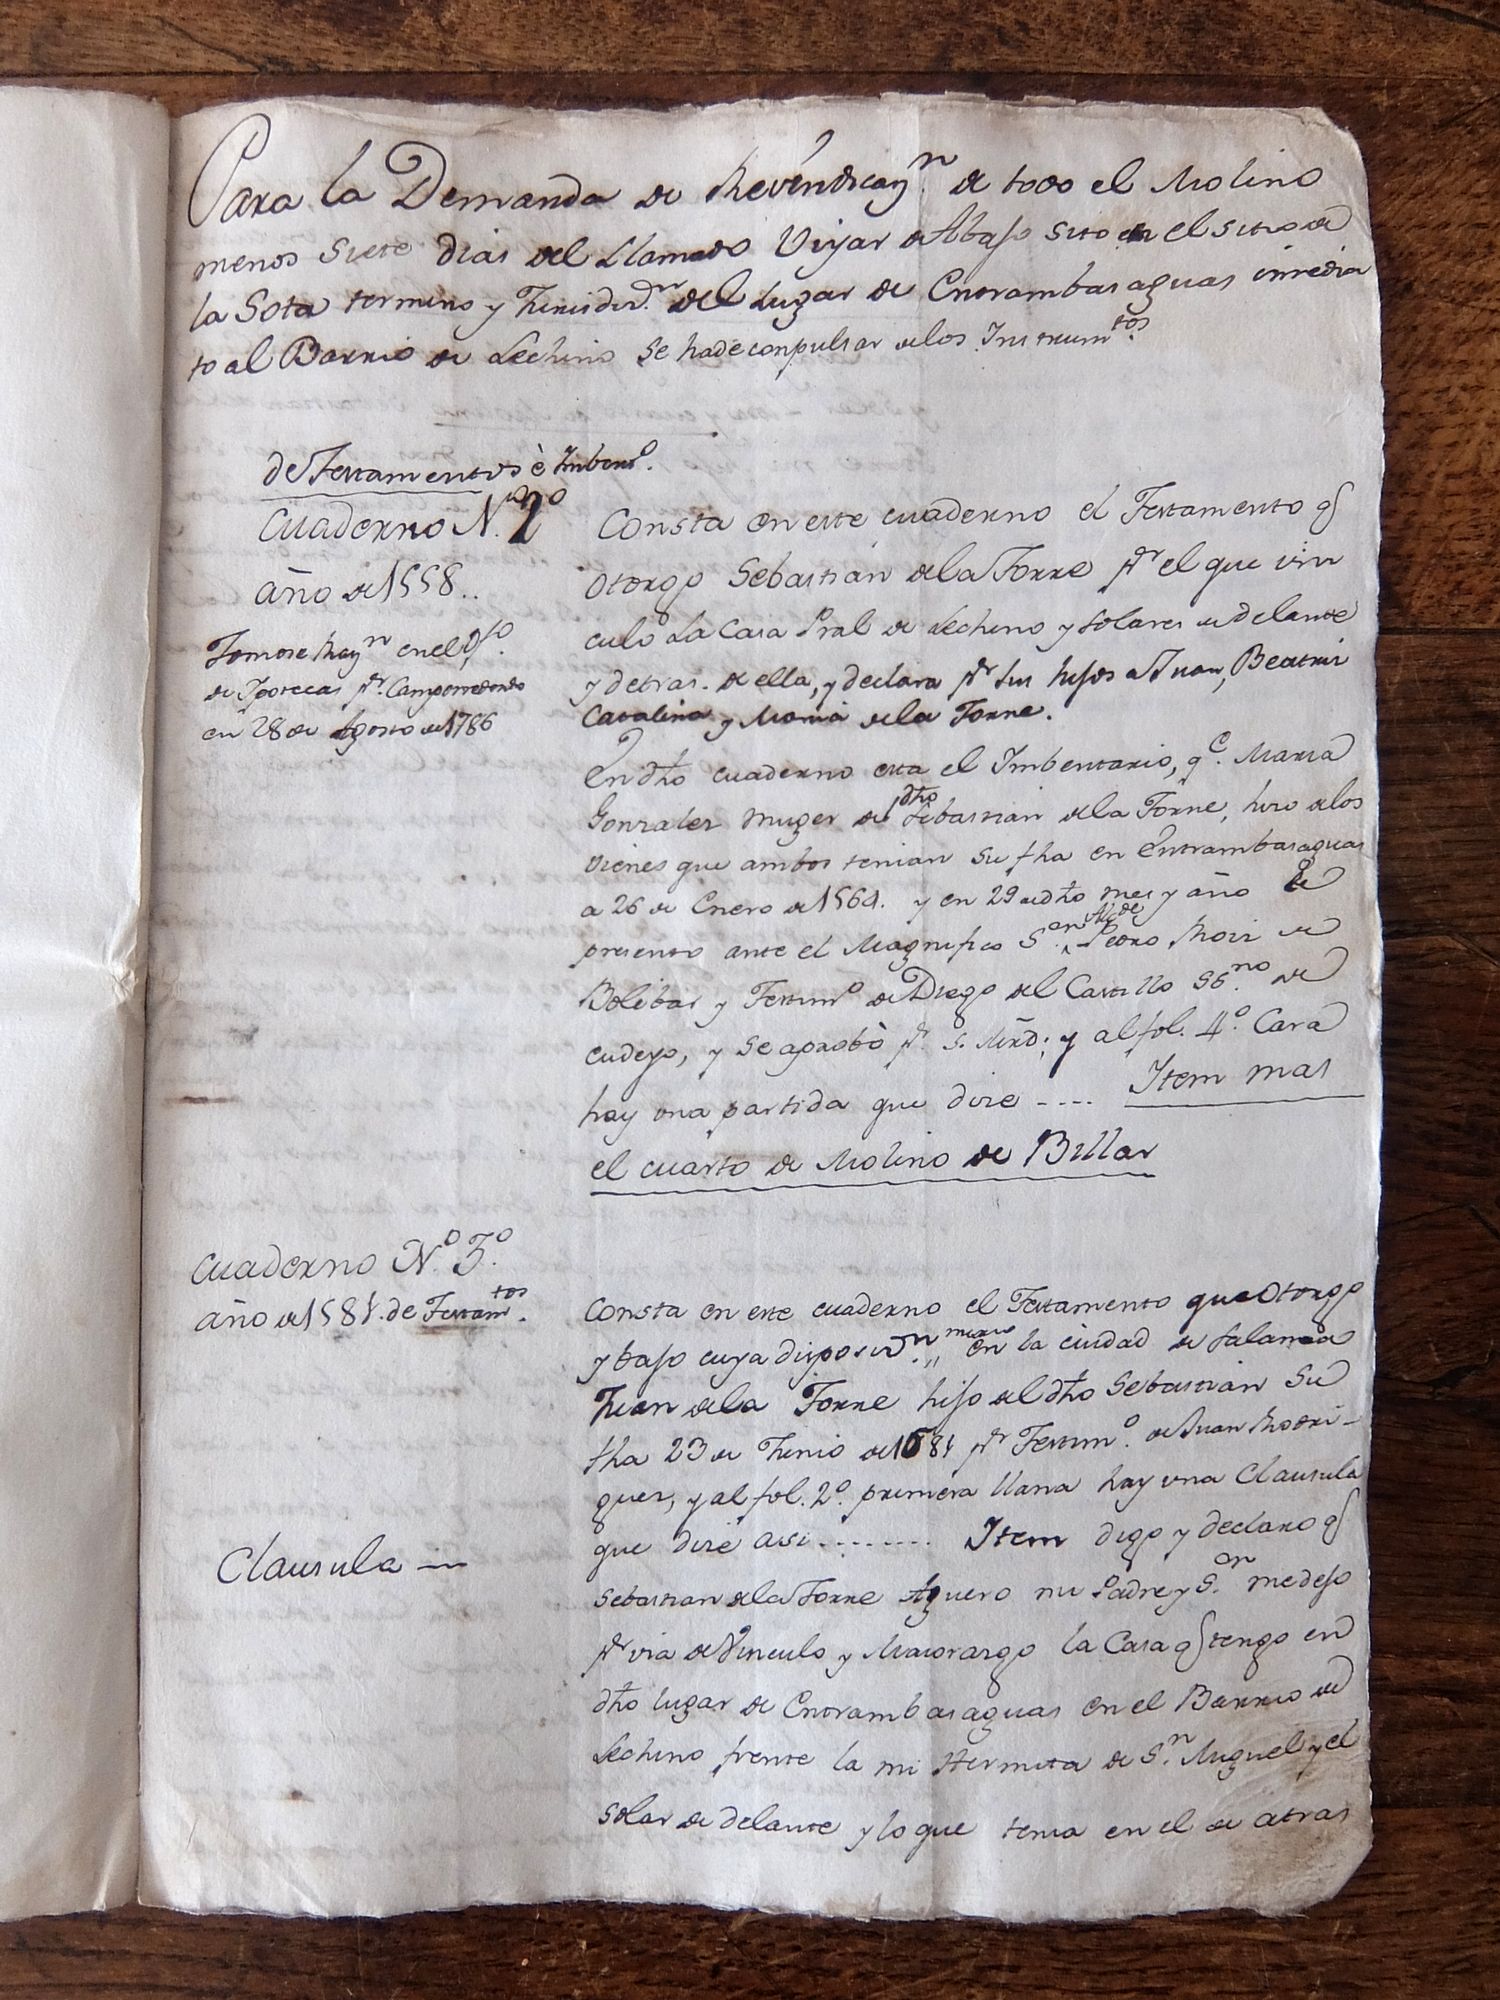 Para la Demanda de Revindicazn. de todo el Molino
menos siete dias del llamado Viyar de Abajo sito en el sitio de
la Sota termino y Jurisdizn. del Lugar de Entrambasaguas inmedia
to al Barrio de Lechino se hade conpulsar delos Instrumtos.
de Testamentos è Imbento.
Cuaderno No. 1o
año de 1558..
Tomose Razn en el Ofo.
de Ipotecas pr. Camporredondo
en 28 de Agosto de 1786
Consta en este cuaderno el Testamento q
otorgo Sebastian dela Torre pr el que vin
culo La Casa Pral de Lechino y solares de delante
y detras. de ella, y declara pr sus hijos a Juan, Beatriz
Catalina y Maria dela Torre.
En dho cuaderno esta el Imbentario, qe. Maria
Gonzalez muger de dho Sebastian dela Torre, hizo delos
vienes que ambos tenian su fha en Entrambasaguas
a 26 de Enero de 1564. y en 29 de dho mes y año se
presento ante el Magnifico Sor. Alcde Pedro Roiz de
Bolibar y Testimo. de Diego del Castillo Sno. de
cudeyo, y se aprobò pr. S. Mrd; y al fol. 4o. Cara
hay una partida que dize ---- Item mas
el cuarto de Molino de Billar
Cuaderno No. 3o.
año de 1584. de Testamtos.
Consta en este cuaderno el Testamento que otorgo
y bajo cuya disposizn. murio en la ciudad de Salamca
Juan dela Torre hijo del dho Sebastian Su
fha 23 de Junio de 1584 pr Testimo. de Juan Rodri-
guez, y al fol. 2o. primera llana hay una Clausula
que dize asi........ Item digo y declaro q
Clausula —
Sebastian dela Torre Aguero mi Padre y Sor. me dejo
pr via de Vinculo y Maiorazgo la Casa q tengo en
dho lugar de Entrambasaguas en el Barrio de
Lechino frente la mi Hermita de Sn. Miguel y el
solar de delante y lo que tenia en el de atras